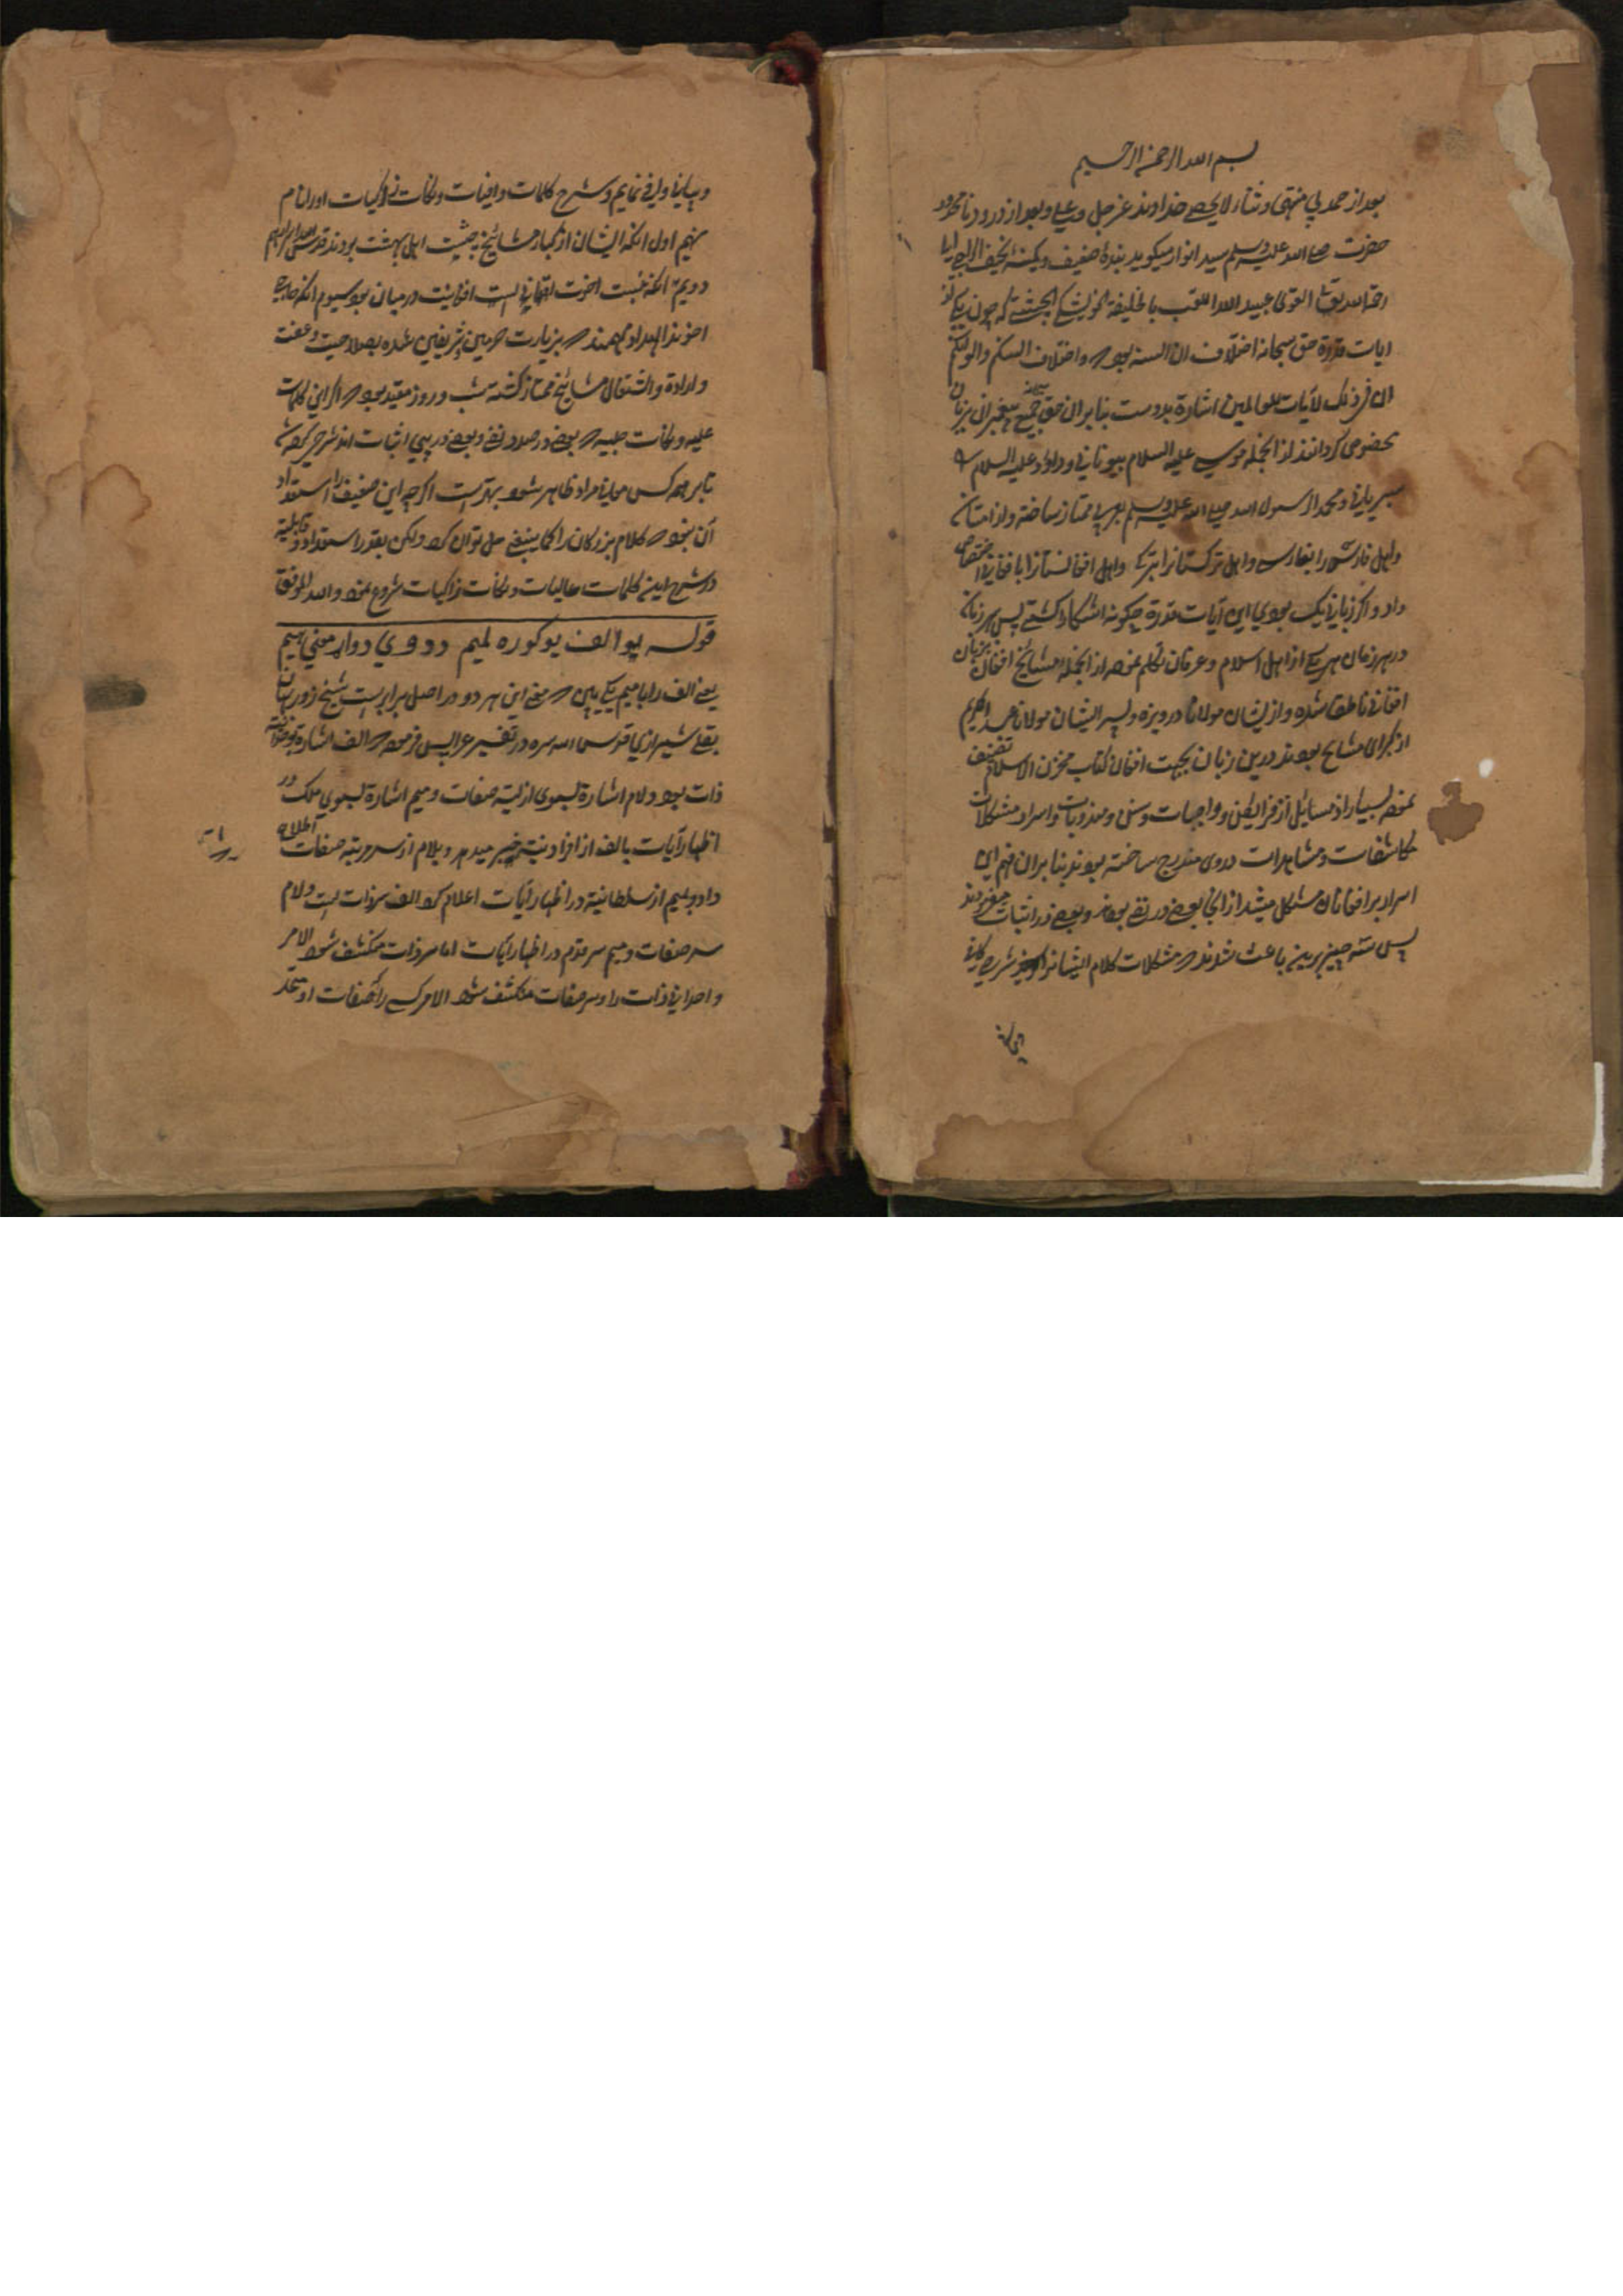 بسم الله الرحمن الرحیم
بعد از حمد بی منتهی و ثناء لایحصی خداوند عز جل وعلی و بعد از درود نامحدود
حضرت صلی الله علیه وسلم سید انوار میکوید بندهٔ ضعیف و کمینهٔ نحیف الراجی الی
الله القوی عبید الله الملقب بالخلیفة الخویشکی الچشتی که چون یکی از
ایات قدرة حق سبحانه اختلاف السنه بود که واختلاف السنتکم والوانکم
ان فی ذلک لآیات للعالمین اشارة بدوست بنابران حق جمیع پیغمبران بزبان
مخصوص کردانند از انجمله موسی علیه السلام بیونانی و داود علیه السلام
سریانی و محمد الرسول الله صلی الله علیه وسلم بعربی ممتاز ساخته و از امتان
واهل فارس را بفارسی واهل ترکستانرا بترکی واهل افغانستانرا بافغانی اختصاص
داد و اکر زبانی یک بودی این آیات قدرة چکونه اشکارا کشتی پس هر زمان
در هر زمان هر یکی از اهل اسلام و عرفان تکلم نموده از انجمله مشایخ افغان بزبان
افغانی ناطق شده و از ایشان مولانا درویزه و پسر ایشان مولانا عبد الکریم
از کبرای مشایخ بودند درین زبان بجهت افغان کتاب مخزن الاسلام تصنیف
نموده بسیار از مسایل از فرایض و واجبات و سنن و مندوبات و اسرار مشکلات
مکاشفات و مشاهدات دروی مندرج ساخته بودند بنابران فهم این
اسرار بر افغانان مشکل میشد از انجا بعضی در نفی بودند و بعضی در اثبات
پس سه چیز برین باعث شوند که مشکلات کلام ایشانرا شرح کافی
و بیانی وافی نمایم و شرح کلمات وافیات و نکات زاکیات او را تمام
نهم اول انکه ایشان از کبار مشایخ چشت اهل بهشت بودند قدس الله اسرارهم
دویم آنکه نسبت اخوت افغانیت در میان بود سیوم انکه حاجی
اخوند الهداد مهمند که بزیارت حرمین شریفین شده بصلاحیت و عفت
و ارادة و اشتغال مشایخ ممتاز کشته شب و روز مقید بود که اکر این کلمات
علیه و نکات جلیه که بعضی در صدد نفی و بعضی در پی اثبات اند شرح کرده شود
تا بر همه کس معانی مراد ظاهر شود بهتر است اکرچه این ضعیف را استعداد
آن نبود که کلام بزرکان را کما ینبغی حل توان کرد ولکن بقدر استعداد و قابلیة
در شرح اینی کلمات عالیات و نکات زاکیات شروع نمود والله الموفق
قوله یو الف یو کوره لمیم دووی دواړه معنی سیم
یعنی الف را با میم یکی بین که معنی این هر دو در اصل برابر است شیخ روزبهان
بقلی شیرازی قدس الله سره در تفسیر عرایس فرموده که الف اشارة
ذات بود و لام اشارة بسوی ازلیة صفات و میم اشارة بسوی ملک در
اظهار آیات بالف از افرادنیة خبر میدهد و بلام از سرمدیة صفات اطلاع
داد و بمیم از سلطانیة در اظهار آیات اعلام کرد الف سر ذات است و لام
سر صفات و میم سر قدم در اظهار آیات اما سر ذات منکشف نشود الا مر
واحدانی ذات را و سر صفات منکشف نشود الا مر کسی را که صفات او متحد